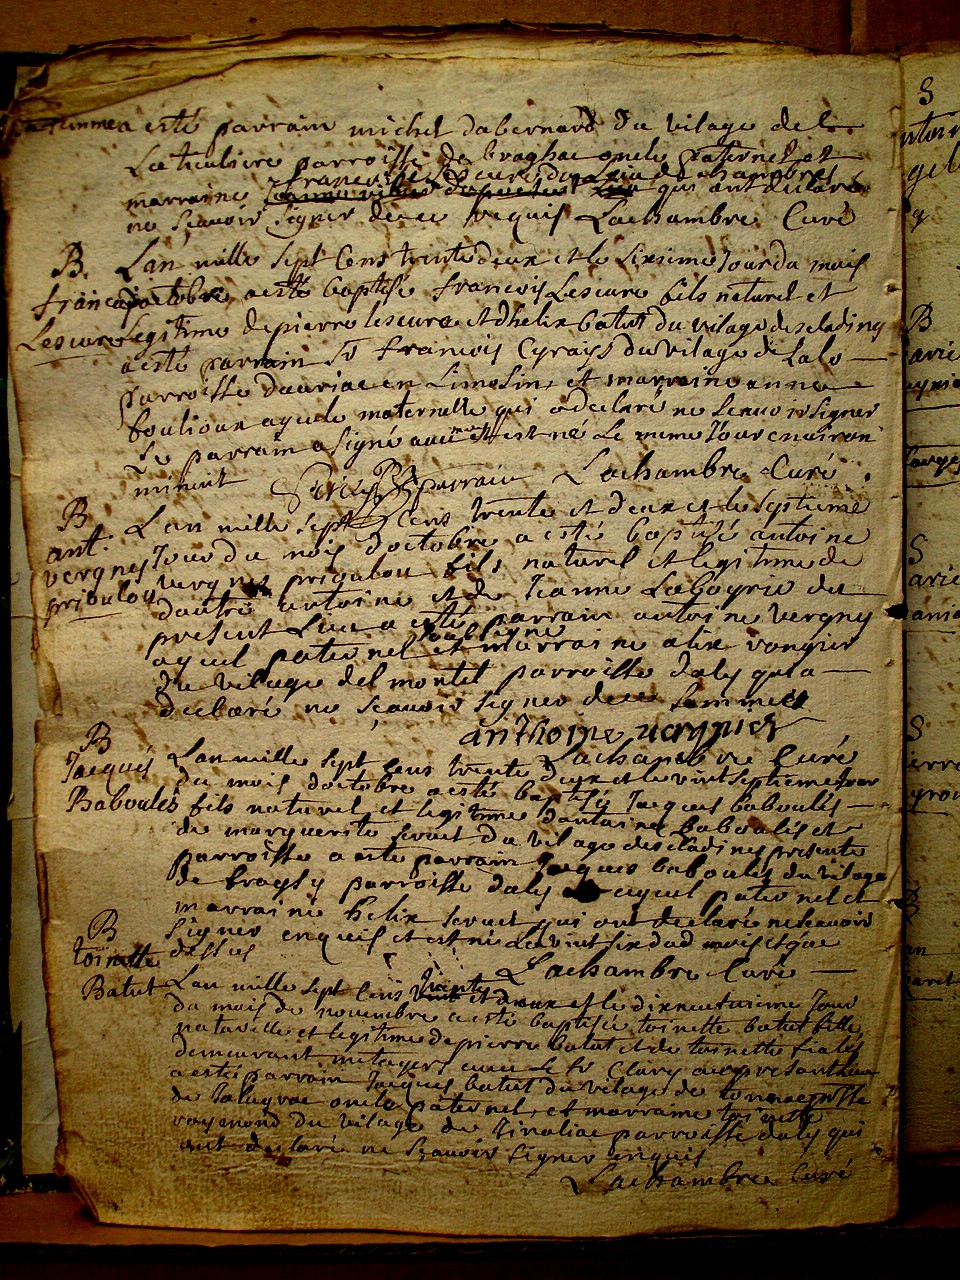 a esté parrain michel dabernard du vilage de l
parroisse de braghac oncle paternel et
francoise
marraine qui ont declaré
ne sçavoir signer de ce requis Lachambre Curé
B. Lan mille sept Cens trente deux et le sixieme Jour du mois
francois doctobre a esté baptisé francois Lescure fils naturel et
Lescure legitime de pierre lescure et dhelix batut du vilage descladines
a esté parrain Sr francois Cyrays du vilage de Lalo
parroisse dauriac en Limosin, et marraine anne
bouliou ayeule maternelle qui a declaré ne scavoir signer
Le parrain a signé avec moy et est né Le meme Jour environ
minuit parrain Lachambre Curé
B
Lan mille sept Cens trente et deux et le septieme
ant. Jour du mois doctobre a esté baptisé antoine
vergnes vergnes prioulou fils naturel et legitime de
prioulou dautre antoine et de Jeanne Laboyrie du
present Lieu a esté parrain antoine vergny
soubsigne
ayeul paternel et marraine alix
du vilage del montel parroisse daly qui a
declaré ne sçavoir signer de ce sommée
anthoine vergnies
B Lachambre Curé
Jacques Lan mille sept Cens trente deux et le vint septieme Jour
du mois doctobre a esté baptisé Jacques baboulés
Baboulés fils naturel et legitime dantoine baboulés et
de marguerite seruet du vilage descladines presente
parroisse a esté parrain Jacques baboulés du vilage
de parroisse daly ayeul paternel et
marraine helix seruet qui ont declaré ne scavoir
signer enquis et est né Le vint six dud mois et que
B dessus
toinette Lachambre Curé
Batut Lan mille sept Cens trente et deux et le dixneuvieme Jour
du mois de novembre a esté baptisée toinette batut fille
naturelle et legitime de pierre batut et de toinette
demeurant metayers avec le Sr Clary
a esté parrain Jacques batut du vilage de
de oncle paternel, et marraine toinette
raymond du vilage de parroisse daly qui
ont declaré ne sçavoir signer enquis
Lachambre Curé